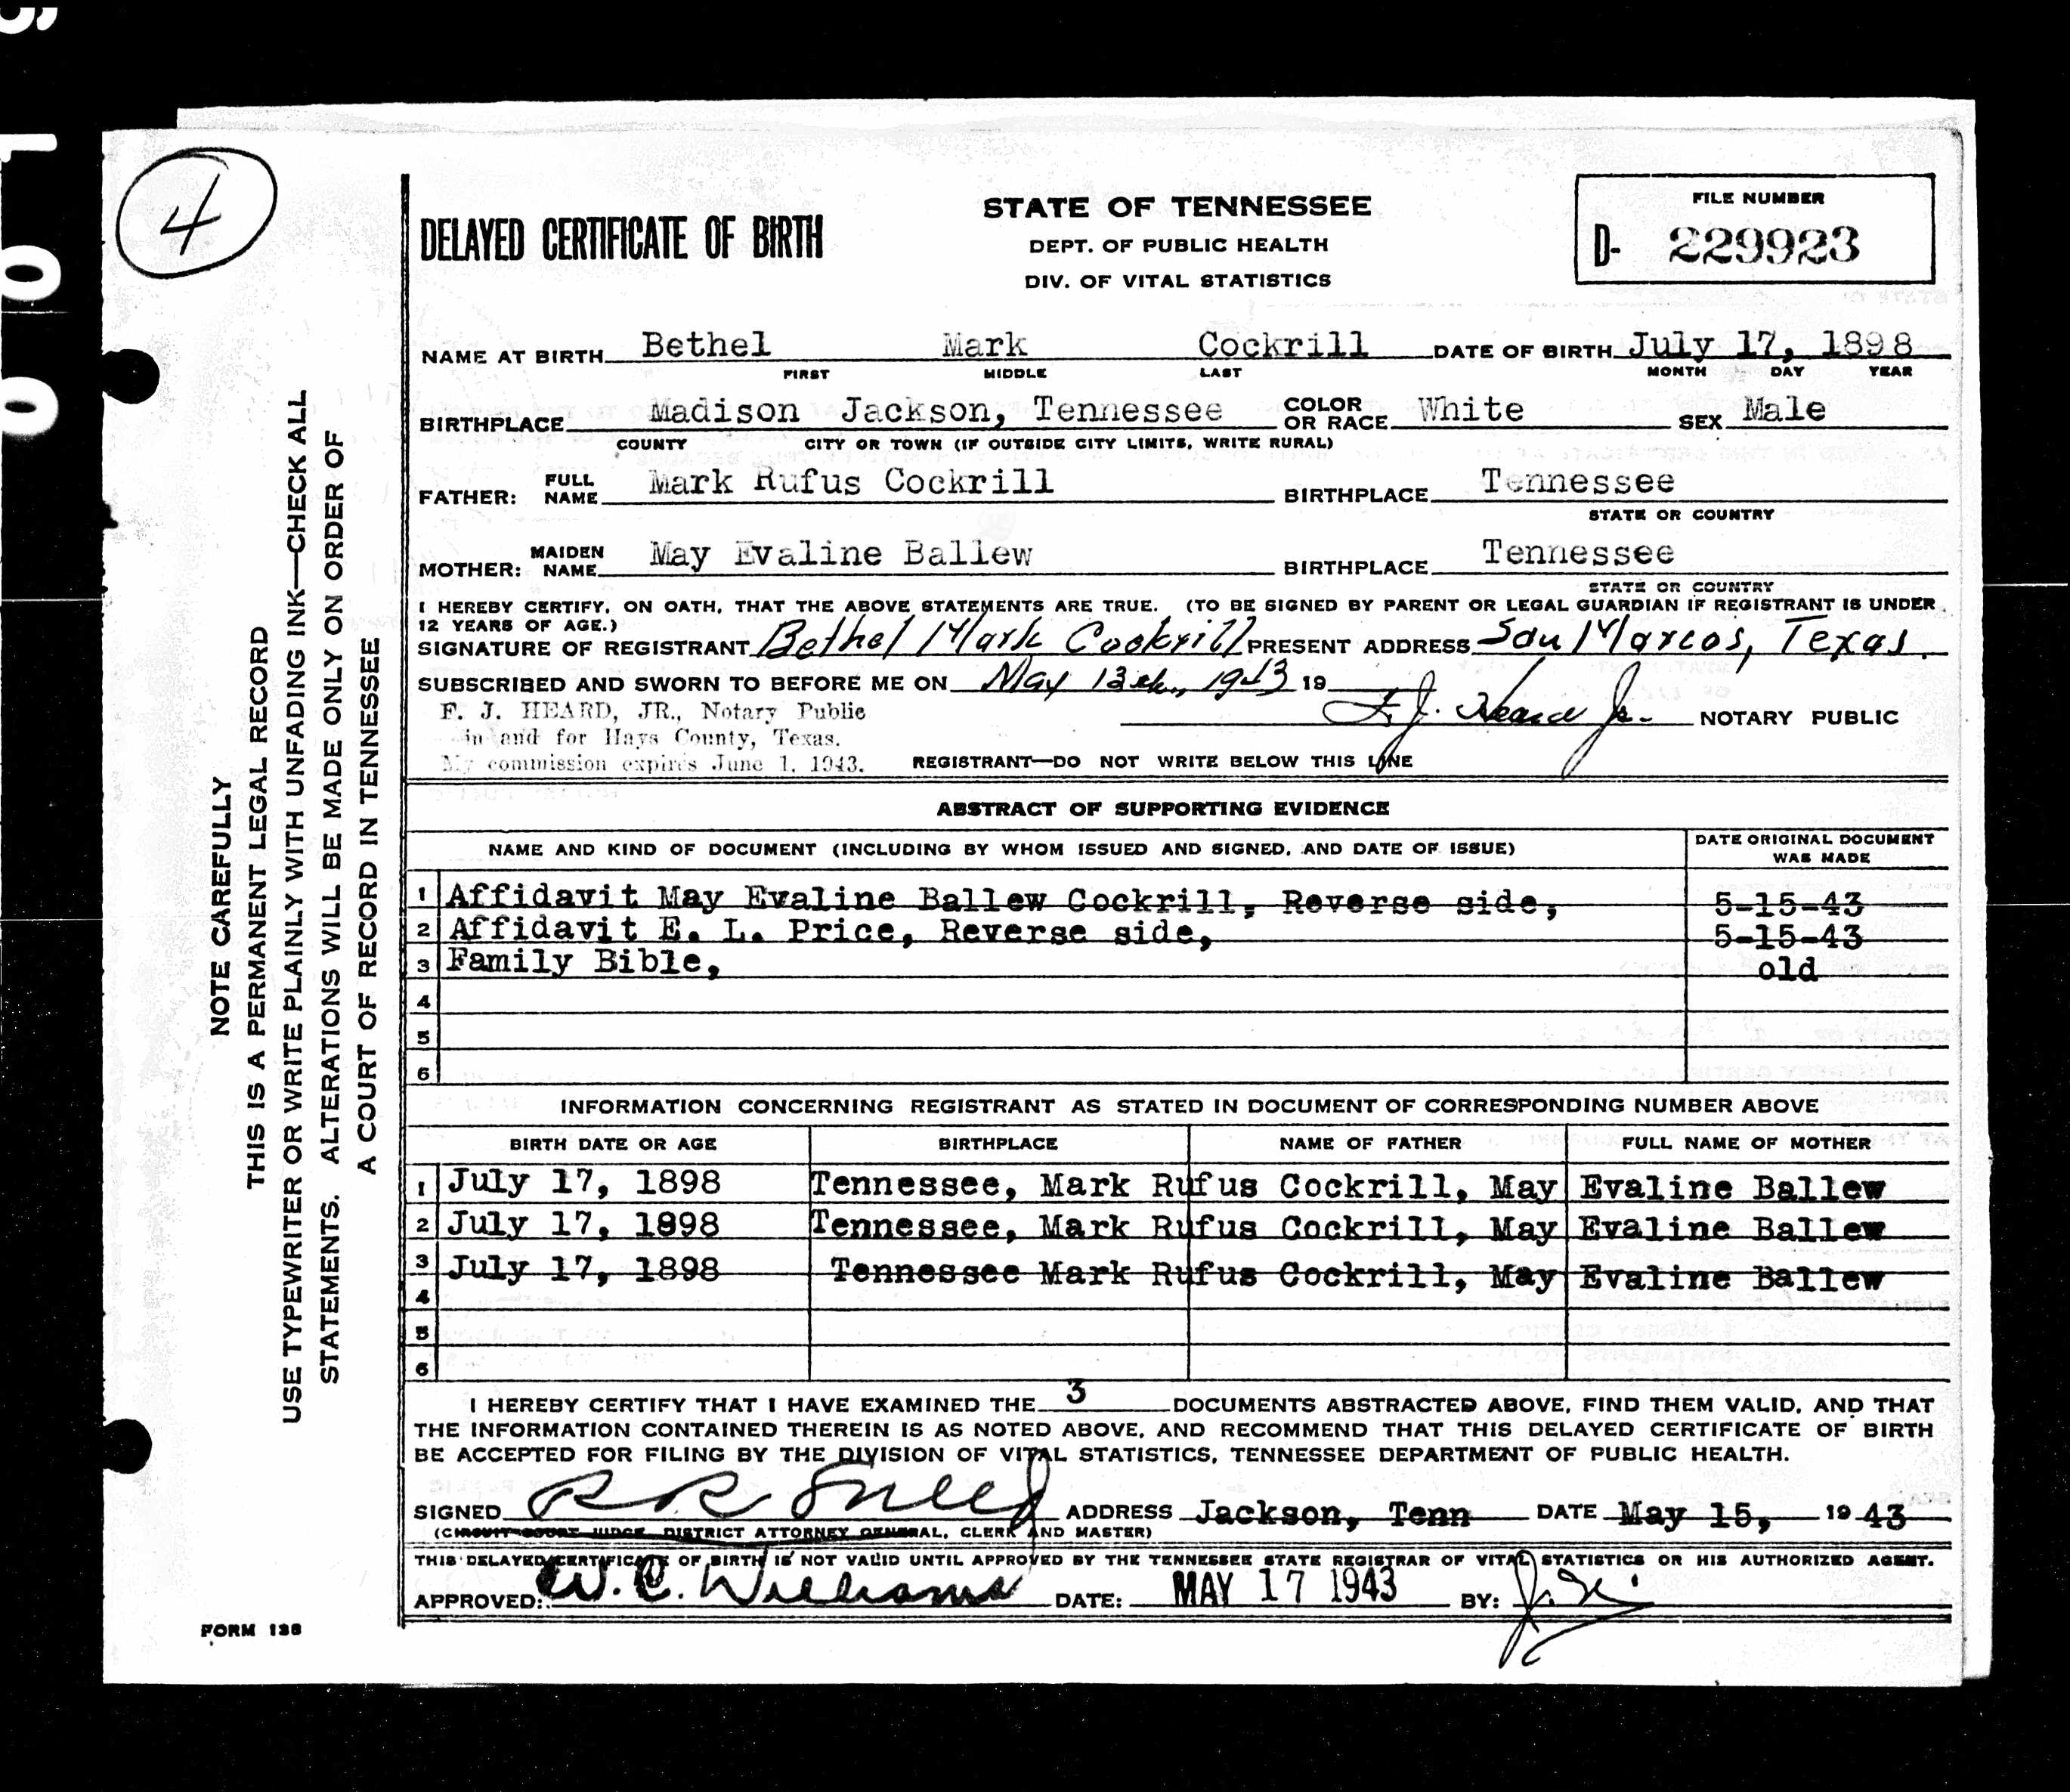 4
DELAYED CERTIFICATE OF BIRTH
STATE OF TENNESSEE
DEPT. OF PUBLIC HEALTH
DIV. OF VITAL STATISTICS
FILE NUMBER
D- 229923
NAME AT BIRTH Bethel Mark Cockrill DATE OF BIRTH July 17, 1898
FIRST MIDDLE LAST MONTH DAY YEAR
BIRTHPLACE Madison Jackson, Tennessee COLOR OR RACE White SEX Male
COUNTY CITY OR TOWN (IF OUTSIDE CITY LIMITS, WRITE RURAL)
FATHER: FULL NAME Mark Rufus Cockrill BIRTHPLACE Tennessee
STATE OR COUNTRY
MOTHER: MAIDEN NAME May Evaline Ballew BIRTHPLACE Tennessee
STATE OR COUNTRY
I HEREBY CERTIFY, ON OATH, THAT THE ABOVE STATEMENTS ARE TRUE. (TO BE SIGNED BY PARENT OR LEGAL GUARDIAN IF REGISTRANT IS UNDER
12 YEARS OF AGE.)
SIGNATURE OF REGISTRANT Bethel Mark Cockrill PRESENT ADDRESS San Marcos, Texas.
SUBSCRIBED AND SWORN TO BEFORE ME ON May 13th, 1943 19
F. J. HEARD, JR., Notary Public
in and for Hays County, Texas.
My commission expires June 1, 1943.
F. J. Heard Jr. NOTARY PUBLIC
REGISTRANT—DO NOT WRITE BELOW THIS LINE
ABSTRACT OF SUPPORTING EVIDENCE
NAME AND KIND OF DOCUMENT (INCLUDING BY WHOM ISSUED AND SIGNED, AND DATE OF ISSUE) DATE ORIGINAL DOCUMENT WAS MADE
1 Affidavit May Evaline Ballew Cockrill, Reverse side, 5-15-43
2 Affidavit E. L. Price, Reverse side, 5-15-43
3 Family Bible, old
4
5
6
INFORMATION CONCERNING REGISTRANT AS STATED IN DOCUMENT OF CORRESPONDING NUMBER ABOVE
BIRTH DATE OR AGE BIRTHPLACE NAME OF FATHER FULL NAME OF MOTHER
1 July 17, 1898 Tennessee, Mark Rufus Cockrill, May Evaline Ballew
2 July 17, 1898 Tennessee, Mark Rufus Cockrill, May Evaline Ballew
3 July 17, 1898 Tennessee Mark Rufus Cockrill, May Evaline Ballew
4
5
6
I HEREBY CERTIFY THAT I HAVE EXAMINED THE 3 DOCUMENTS ABSTRACTED ABOVE, FIND THEM VALID, AND THAT
THE INFORMATION CONTAINED THEREIN IS AS NOTED ABOVE, AND RECOMMEND THAT THIS DELAYED CERTIFICATE OF BIRTH
BE ACCEPTED FOR FILING BY THE DIVISION OF VITAL STATISTICS, TENNESSEE DEPARTMENT OF PUBLIC HEALTH.
SIGNED R R Sneed ADDRESS Jackson, Tenn DATE May 15, 19 43
(CIRCUIT COURT JUDGE, DISTRICT ATTORNEY GENERAL, CLERK AND MASTER)
THIS DELAYED CERTIFICATE OF BIRTH IS NOT VALID UNTIL APPROVED BY THE TENNESSEE STATE REGISTRAR OF VITAL STATISTICS OR HIS AUTHORIZED AGENT.
APPROVED: W. C. Williams DATE: MAY 17 1943 BY:
NOTE CAREFULLY
THIS IS A PERMANENT LEGAL RECORD
USE TYPEWRITER OR WRITE PLAINLY WITH UNFADING INK—CHECK ALL
STATEMENTS. ALTERATIONS WILL BE MADE ONLY ON ORDER OF
A COURT OF RECORD IN TENNESSEE
FORM 138